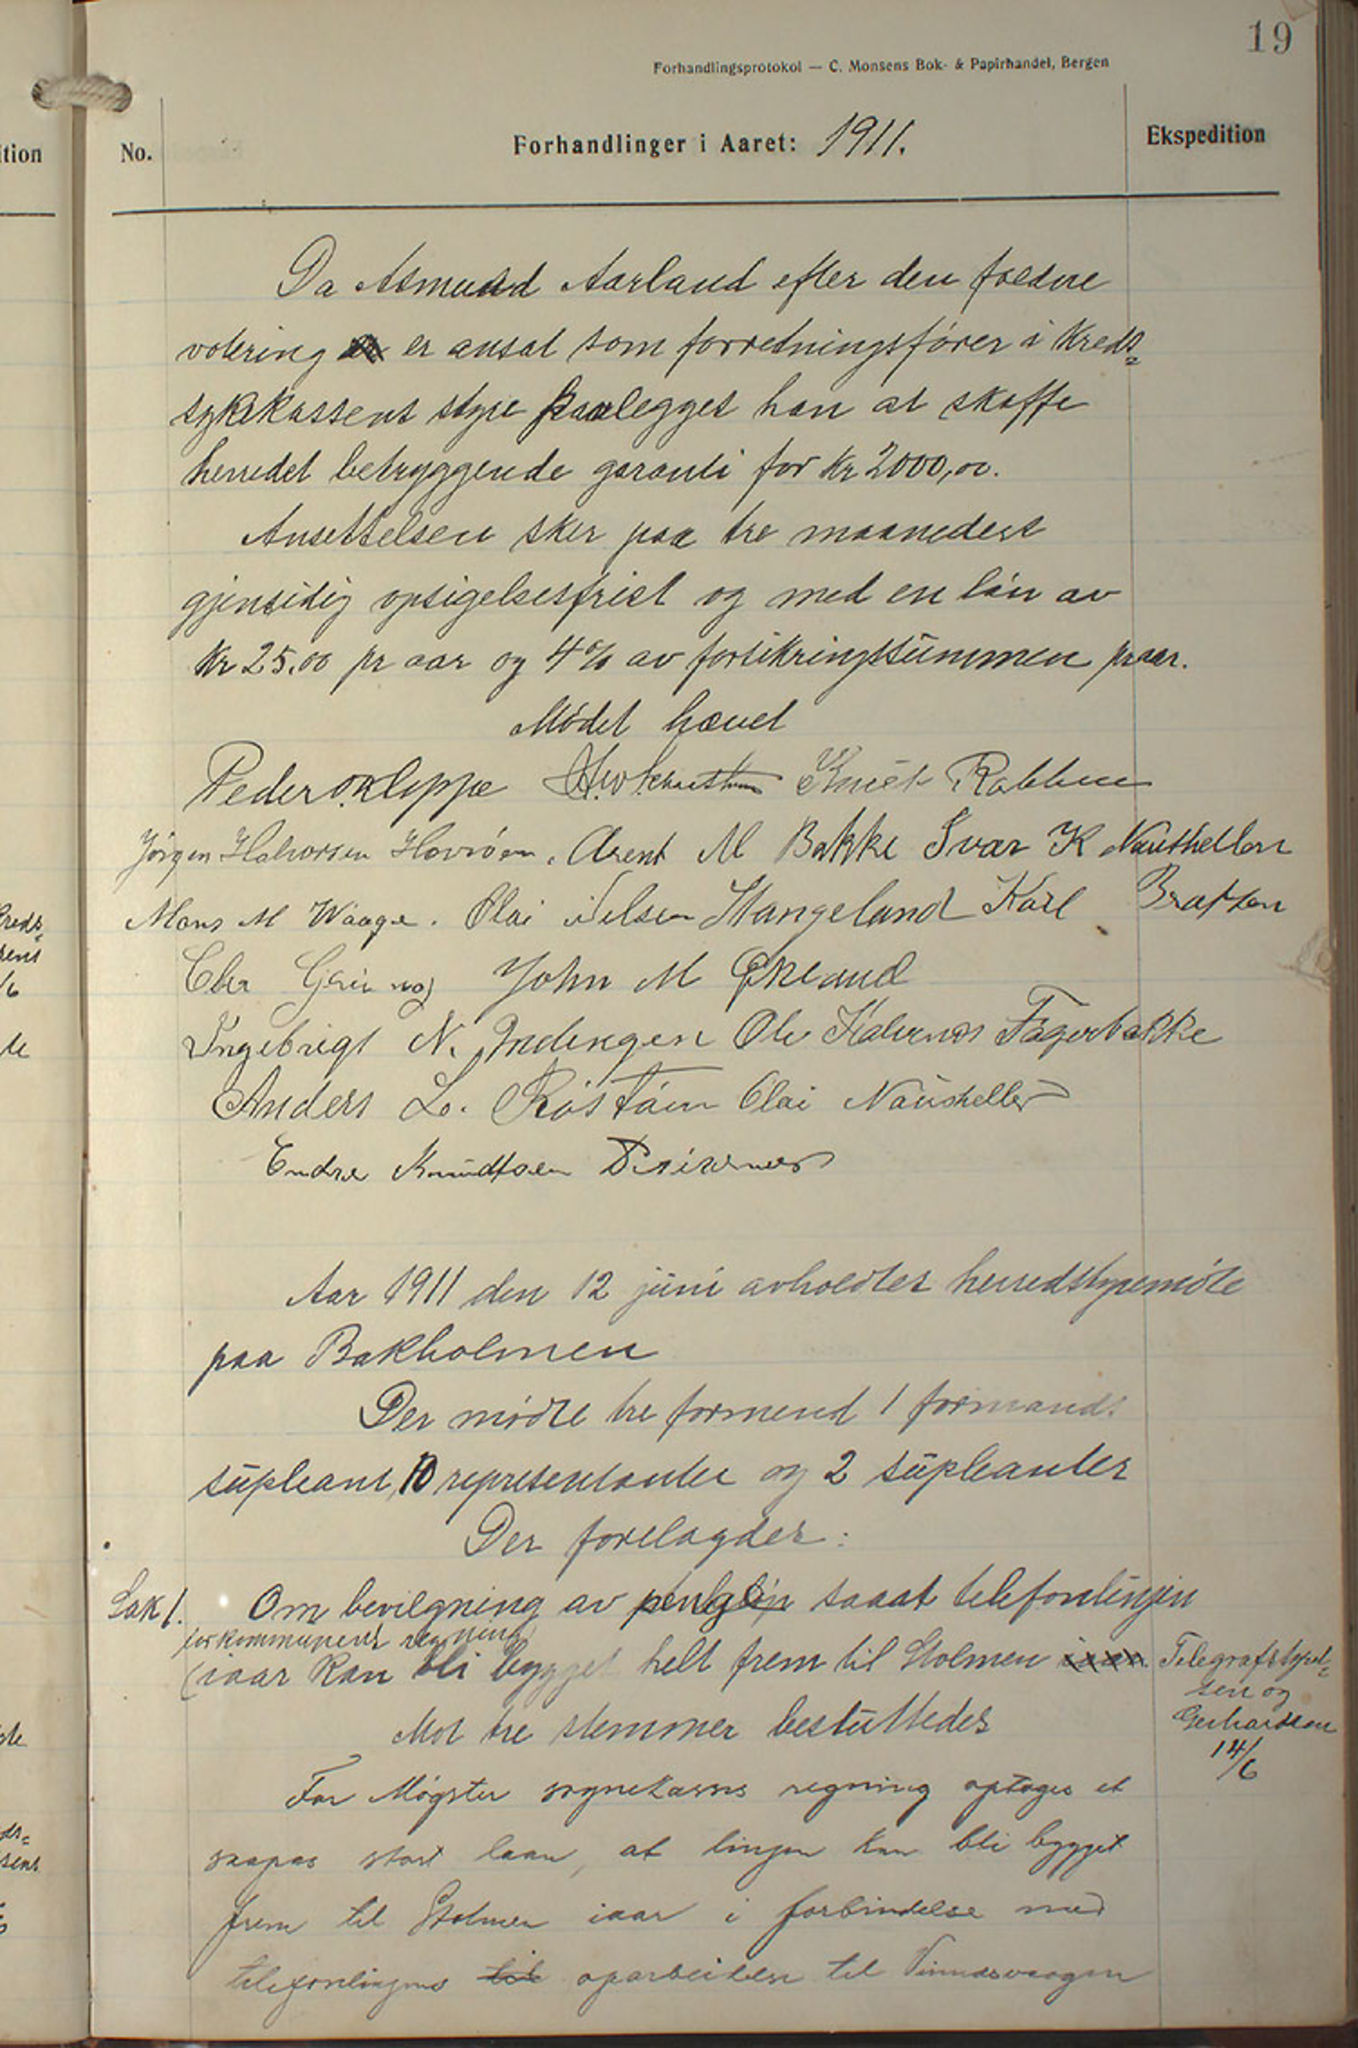 19
Forhandlingsprotokol — C. Monsens Bok- & Papirhandel, Bergen
ition
No.
Forhandlinger i Aaret: 1911.
Ekspedition
Da Asmund Aarland efter den faldne
votering er ansat som forretningsfører i Kreds=
sykekassens styre paalegges han at skaffe
herredet betryggende garanti for Kr 2000,00.
Ansettelsen sker paa tre maaneders
gjensidig opsigelsesfrist og med en løn av
Kr 25.00 pr aar og 4% av forsikringssummen pr aar.
Mødet hævet
Peder O. Kleppe Knut Rabben
Jørgen Halvorsen Hovröen. Arent M Bakke Ivar K Nausthellen
Mons M Waage. Olai Nelsen Stangeland Karl Bratten
John M Økland
Ingebrigt N. Indengen Ole Fagerbakke
Anders L. Röstöen Olai Nausheller
Endre Knudtsen
Aar 1911 den 12 juni avholdtes herredstyremöte
paa Bakholmen
Der mødte tre formend 1 formands
supleant, 10 representanter og 2 supleanter
Der forelagdes:
Sak 1. Om bevilgning av penge saaat telefonlinjen
for kommunens regning
(iaar kan bli bygget helt frem til Stolmen iaar
Telegrafstyrel=
sen og
Gerhardsen
14/6
Mot tre stemmer besluttedes
For Møgster sognekasses regning optages et
saapas stort laan, at linjen kan bli bygget
frem til Stolmen iaar i forbindelse med
telefonlinjens til oparbeidelse til Vinnesvaagen